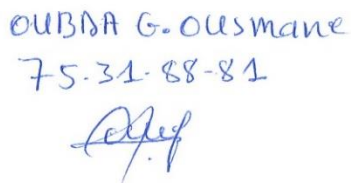 OUBDA G. OUSmane
75.31.88-81